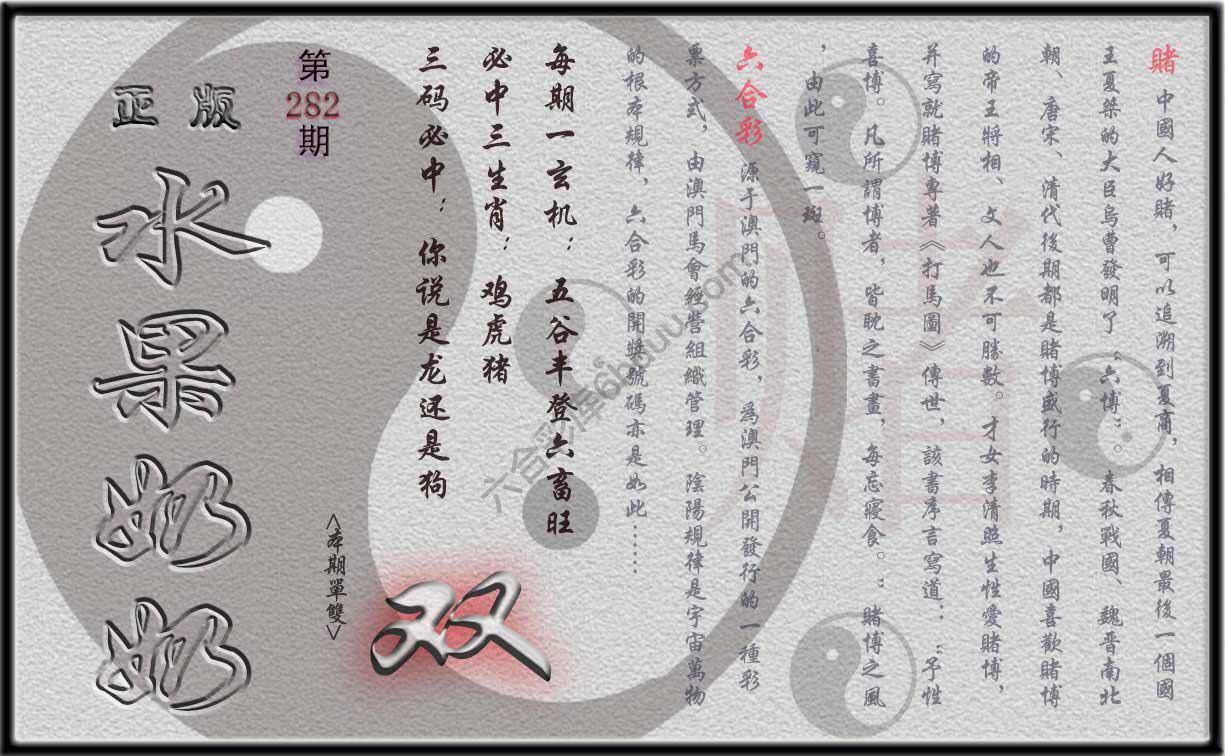 賭 中國人好賭，可以追溯到夏商，相傳夏朝最後一個國
王夏桀的大臣烏曹發明了“六博”。春秋戰國、魏晋南北
朝、唐宋、清代後期都是賭博盛行的時期，中國喜歡賭博
的帝王將相、文人也不可勝數。才女李清照生性愛賭博，
并寫就賭博專著《打馬圖》傳世，該書序言寫道：“予性
喜博。凡所謂博者，皆耽之書畫，每忘寢食。：賭博之風
，由此可窺一斑。
六合彩 源于澳門的六合彩，爲澳門公開發行的一種彩
票方式，由澳門馬會經營組織管理。陰陽規律是宇宙萬物
的根本規律，六合彩的開獎號碼亦是如此……
每期一玄机：五谷丰登六畜旺
必中三生肖：鸡虎猪
三码必中：你说是龙还是狗
双
<本期單雙>
第282期
正版
水果奶奶
賭
六合彩库6hduu.com